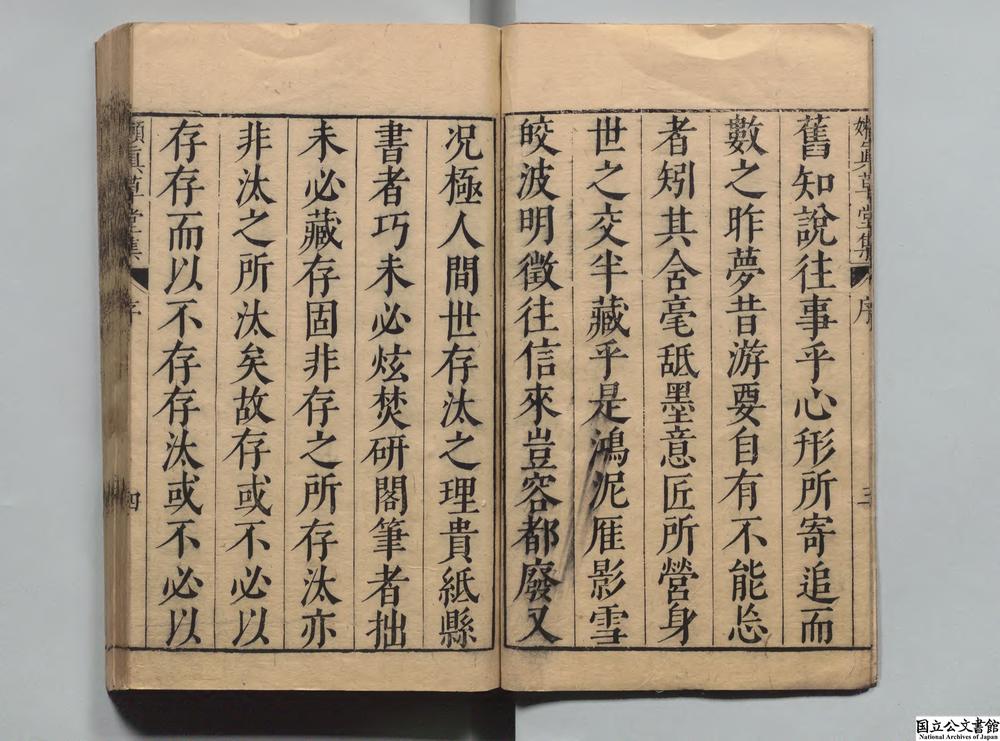 嬾眞草堂集 序 三
舊知說往事乎心形所寄追而
數之昨夢昔游要自有不能忘
者矧其含毫舐墨意匠所營身
世之交半藏乎是鴻泥雁影雪
皎波明徵往信來豈容都廢又
况極人間世存汰之理貴紙縣
書者巧未必炫焚研閣筆者拙
未必藏存固非存之所存汰亦
非汰之所汰矣故存或不必以
存存而以不存存汰或不必以
嬾眞草堂集 序 四
国立公文書館
National Archives of Japan